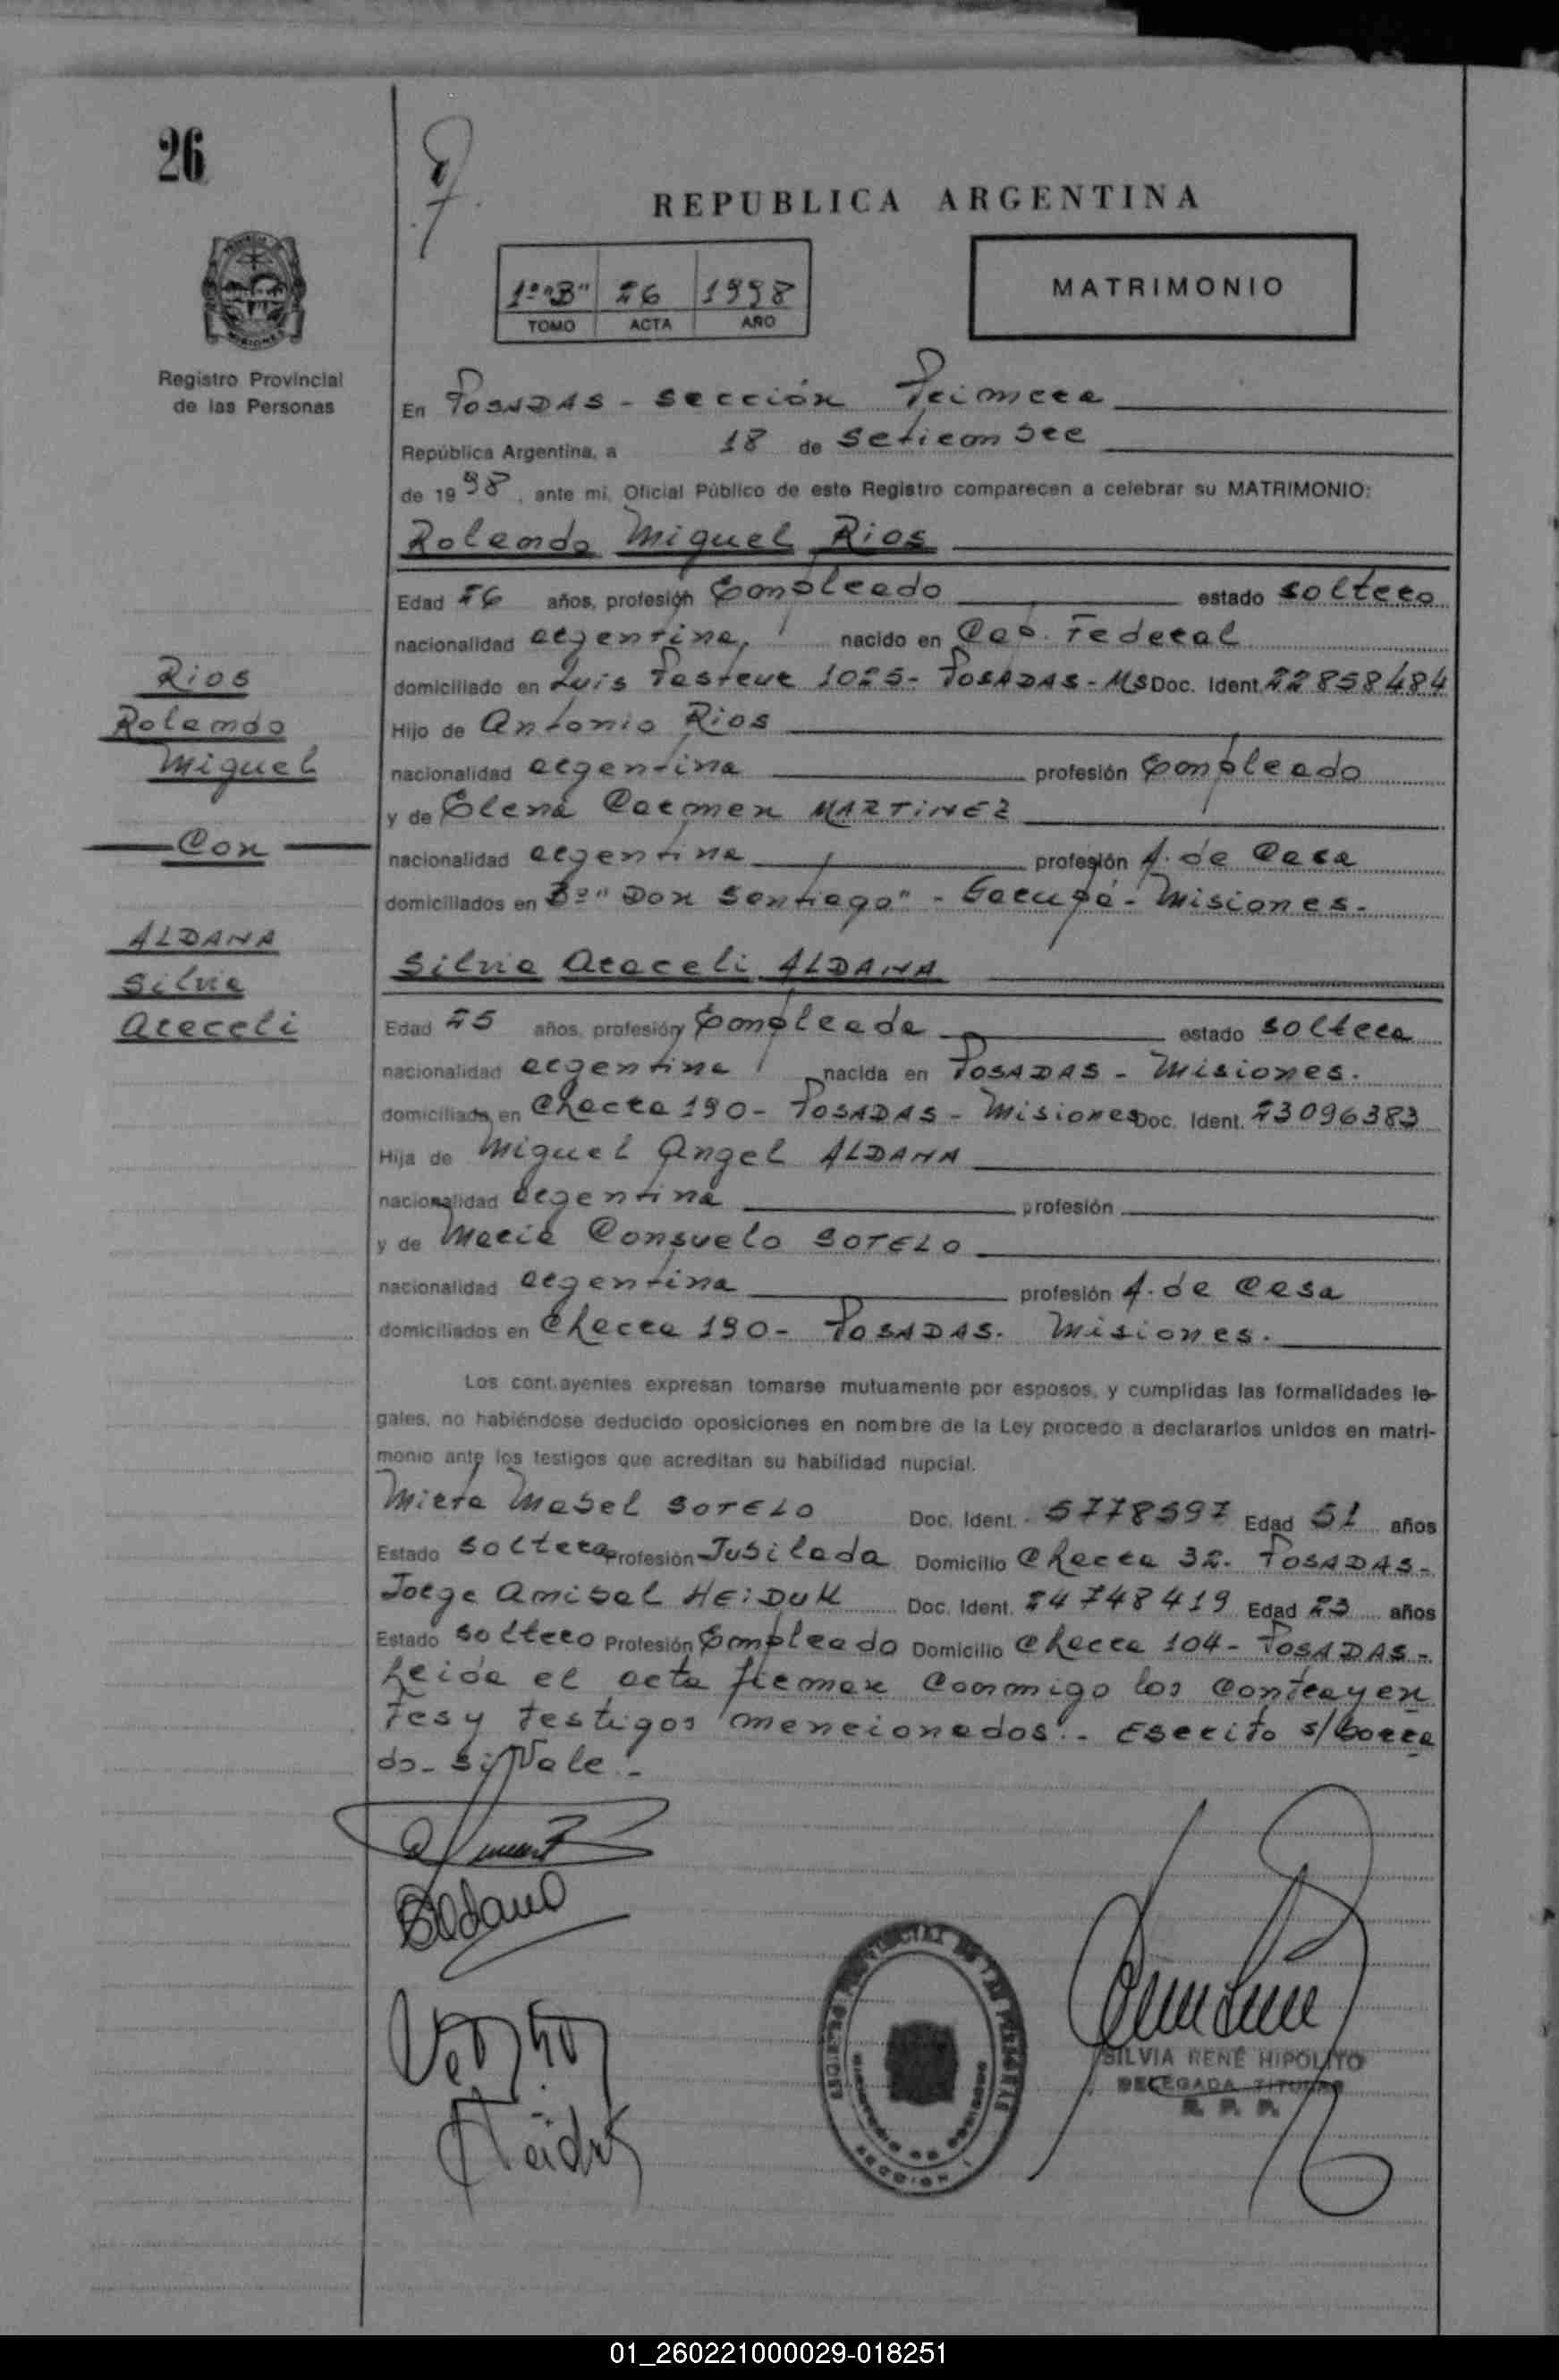 26
REPUBLICA ARGENTINA
1º "B" 26 1998
TOMO ACTA AÑO
MATRIMONIO
Registro Provincial
de las Personas
En POSADAS - sección Primera
República Argentina, a 18 de setiembre
de 1998, ante mi, Oficial Público de este Registro comparecen a celebrar su MATRIMONIO:
Rolando Miguel Rios
Edad 26 años, profesión Empleado estado soltero
nacionalidad argentina, nacido en Cap. Federal
domiciliado en Luis Pasteur 1025 - POSADAS - Ms Doc. Ident. 22858484
Hijo de Antonio Rios
nacionalidad argentina profesión Empleado
y de Elena Carmen MARTINEZ
nacionalidad argentina profesión A. de Casa
domiciliados en Bº "Don Santiago" - Garupá - Misiones.
Rios
Rolando
Miguel
Con
ALDANA
Silvia
Araceli
Silvia Araceli ALDANA
Edad 25 años, profesión Empleada estado soltera
nacionalidad argentina nacida en POSADAS - Misiones.
domiciliada en Chacra 190 - POSADAS - Misiones Doc. Ident. 23096383
Hija de Miguel Angel ALDANA
nacionalidad argentina profesión
y de Maria Consuelo SOTELO
nacionalidad argentina profesión A. de Casa
domiciliados en Chacra 190 - POSADAS. Misiones.
Los cont.ayentes expresan tomarse mutuamente por esposos, y cumplidas las formalidades le-
gales, no habiéndose deducido oposiciones en nombre de la Ley procedo a declararlos unidos en matri-
monio ante los testigos que acreditan su habilidad nupcial.
Mirta Mabel SOTELO Doc. Ident. 5778597 Edad 51 años
Estado soltera Profesión Jubilada Domicilio Chacra 32. POSADAS -
Jorge Anibal HEIDUK Doc. Ident. 24748419 Edad 23 años
Estado soltero Profesión Empleado Domicilio Chacra 104 - POSADAS -
Leida el acta firman conmigo los contrayen
tes y testigos mencionados. - Escrito s/borra
do - si Vale. -
SILVIA RENÉ HIPOLITO
DELEGADA TITULAR
R. P. P.
01_260221000029-018251